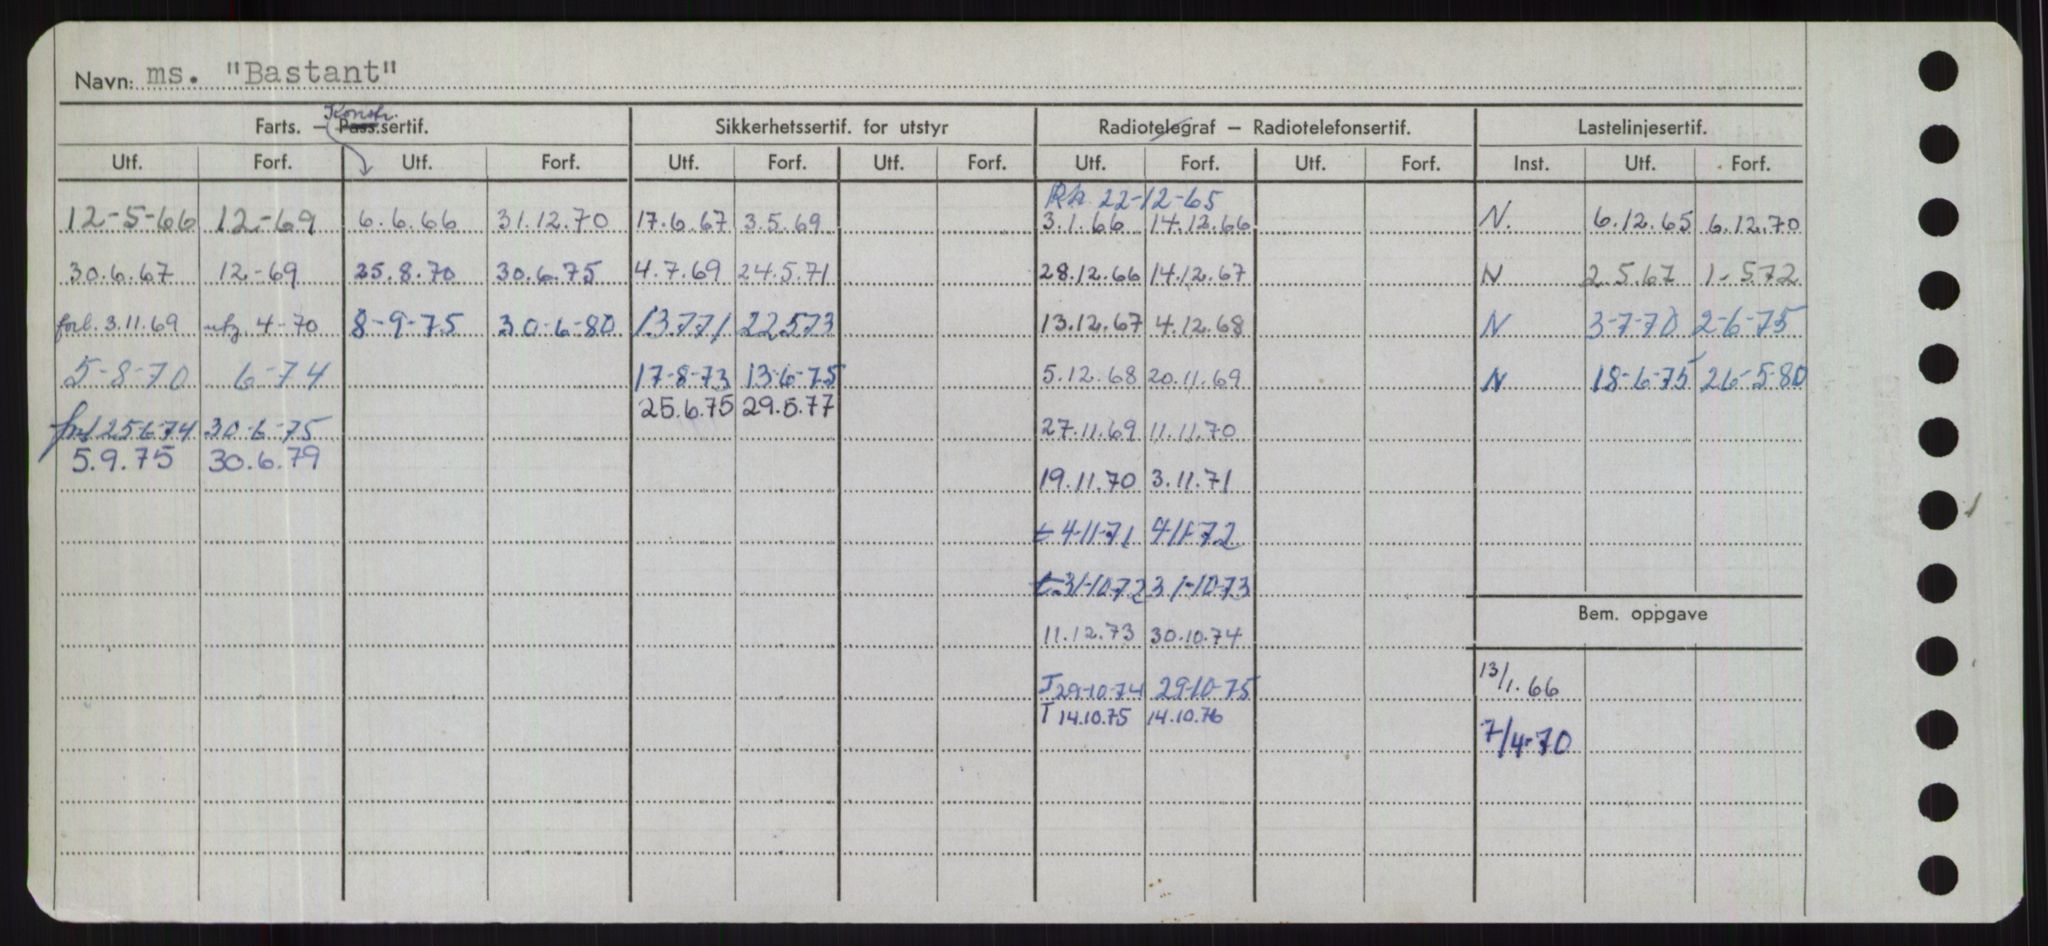 Navn: ms. "Bastant"
Konstr.
Farts. – Pass.sertif. Sikkerhetssertif. for utstyr Radiotelegraf – Radiotelefonsertif. Lastelinjesertif.
Utf. Forf. Utf. Forf. Utf. Forf. Utf. Forf. Utf. Forf. Utf. Forf. Inst. Utf. Forf.
22-12-65
12-5-66 12-69 6.6.66 31.12.70 17.6.67 3.5.69 3.1.66 14.12.66 N. 6.12.65 6.12.70
30.6.67 12.-69 25.8.70 30.6.75 4.7.69 24.5.71 28.12.66 14.12.67 N 2.5.67 1-572
forl. 3.11.69 4-70 8-9-75 30-6-80 13771 22573 13.12.67 4.12.68 N 3-7-70 2-6-75
5-8-70 6-74 17-8-73 13-6-75 5.12.68 20.11.69 N 18-6-75 26-5-80
25.6.75 29.5.77
25674 30-6-75 27.11.69 11.11.70
5.9.75 30.6.79
19.11.70 3.11.71
t 4-11-71 4-11-72
t 31-10-72 31-10-73
Bem. oppgave
11.12.73 30.10.74
13/1.66
T 29-10-74 29-10-75
T 14.10.75 14.10.76
7/4-70